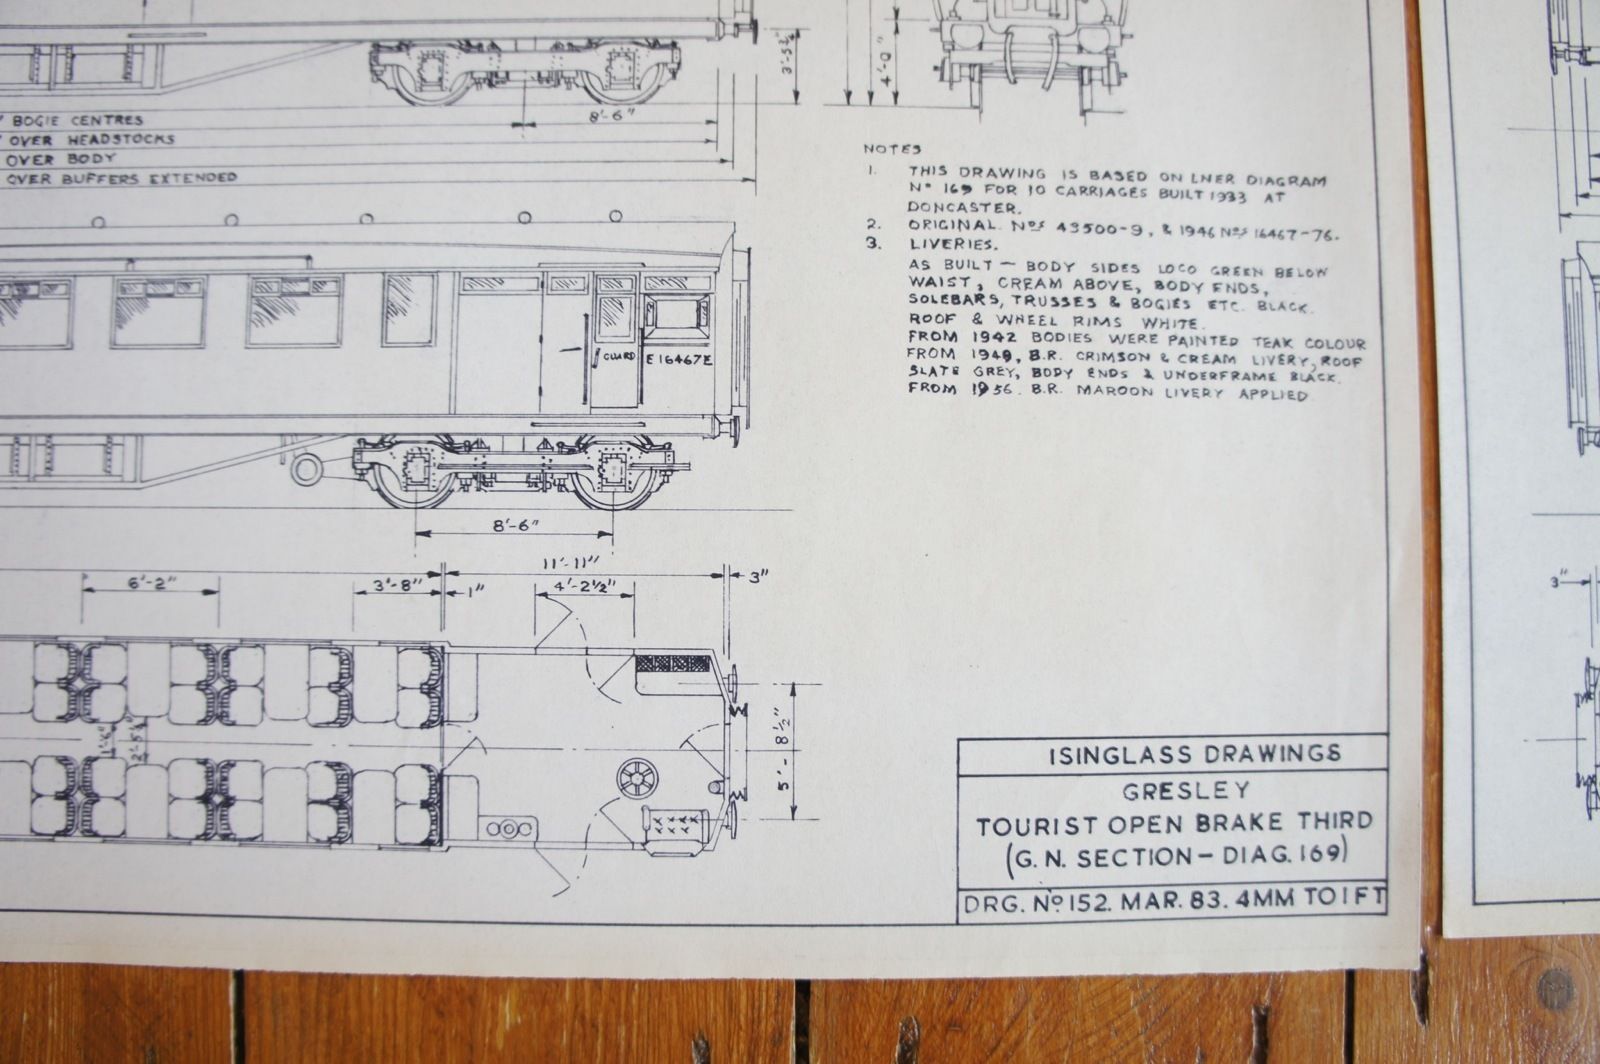 3'-5¾"
4'-0"
8'-6"
' BOGIE CENTRES
' OVER HEADSTOCKS
OVER BODY
OVER BUFFERS EXTENDED
NOTES
1. THIS DRAWING IS BASED ON LNER DIAGRAM
Nº 169 FOR 10 CARRIAGES BUILT 1933 AT
DONCASTER.
2. ORIGINAL Nºs 43500-9, & 1946 Nºs 16467-76.
3. LIVERIES.
AS BUILT – BODY SIDES LOCO GREEN BELOW
WAIST, CREAM ABOVE, BODY ENDS,
SOLEBARS, TRUSSES & BOGIES ETC. BLACK.
ROOF & WHEEL RIMS WHITE.
FROM 1942 BODIES WERE PAINTED TEAK COLOUR
FROM 1949, B.R. CRIMSON & CREAM LIVERY, ROOF
SLATE GREY, BODY ENDS & UNDERFRAME BLACK.
FROM 1956. B.R. MAROON LIVERY APPLIED
GUARD
E16467E
8'-6"
11'-11"
6'-2"
3'-8"
1"
4'-2½"
3"
3"
1'-6"
5'-8½"
ISINGLASS DRAWINGS
GRESLEY
TOURIST OPEN BRAKE THIRD
(G.N. SECTION – DIAG. 169)
DRG. Nº 152. MAR. 83. 4MM TO 1FT